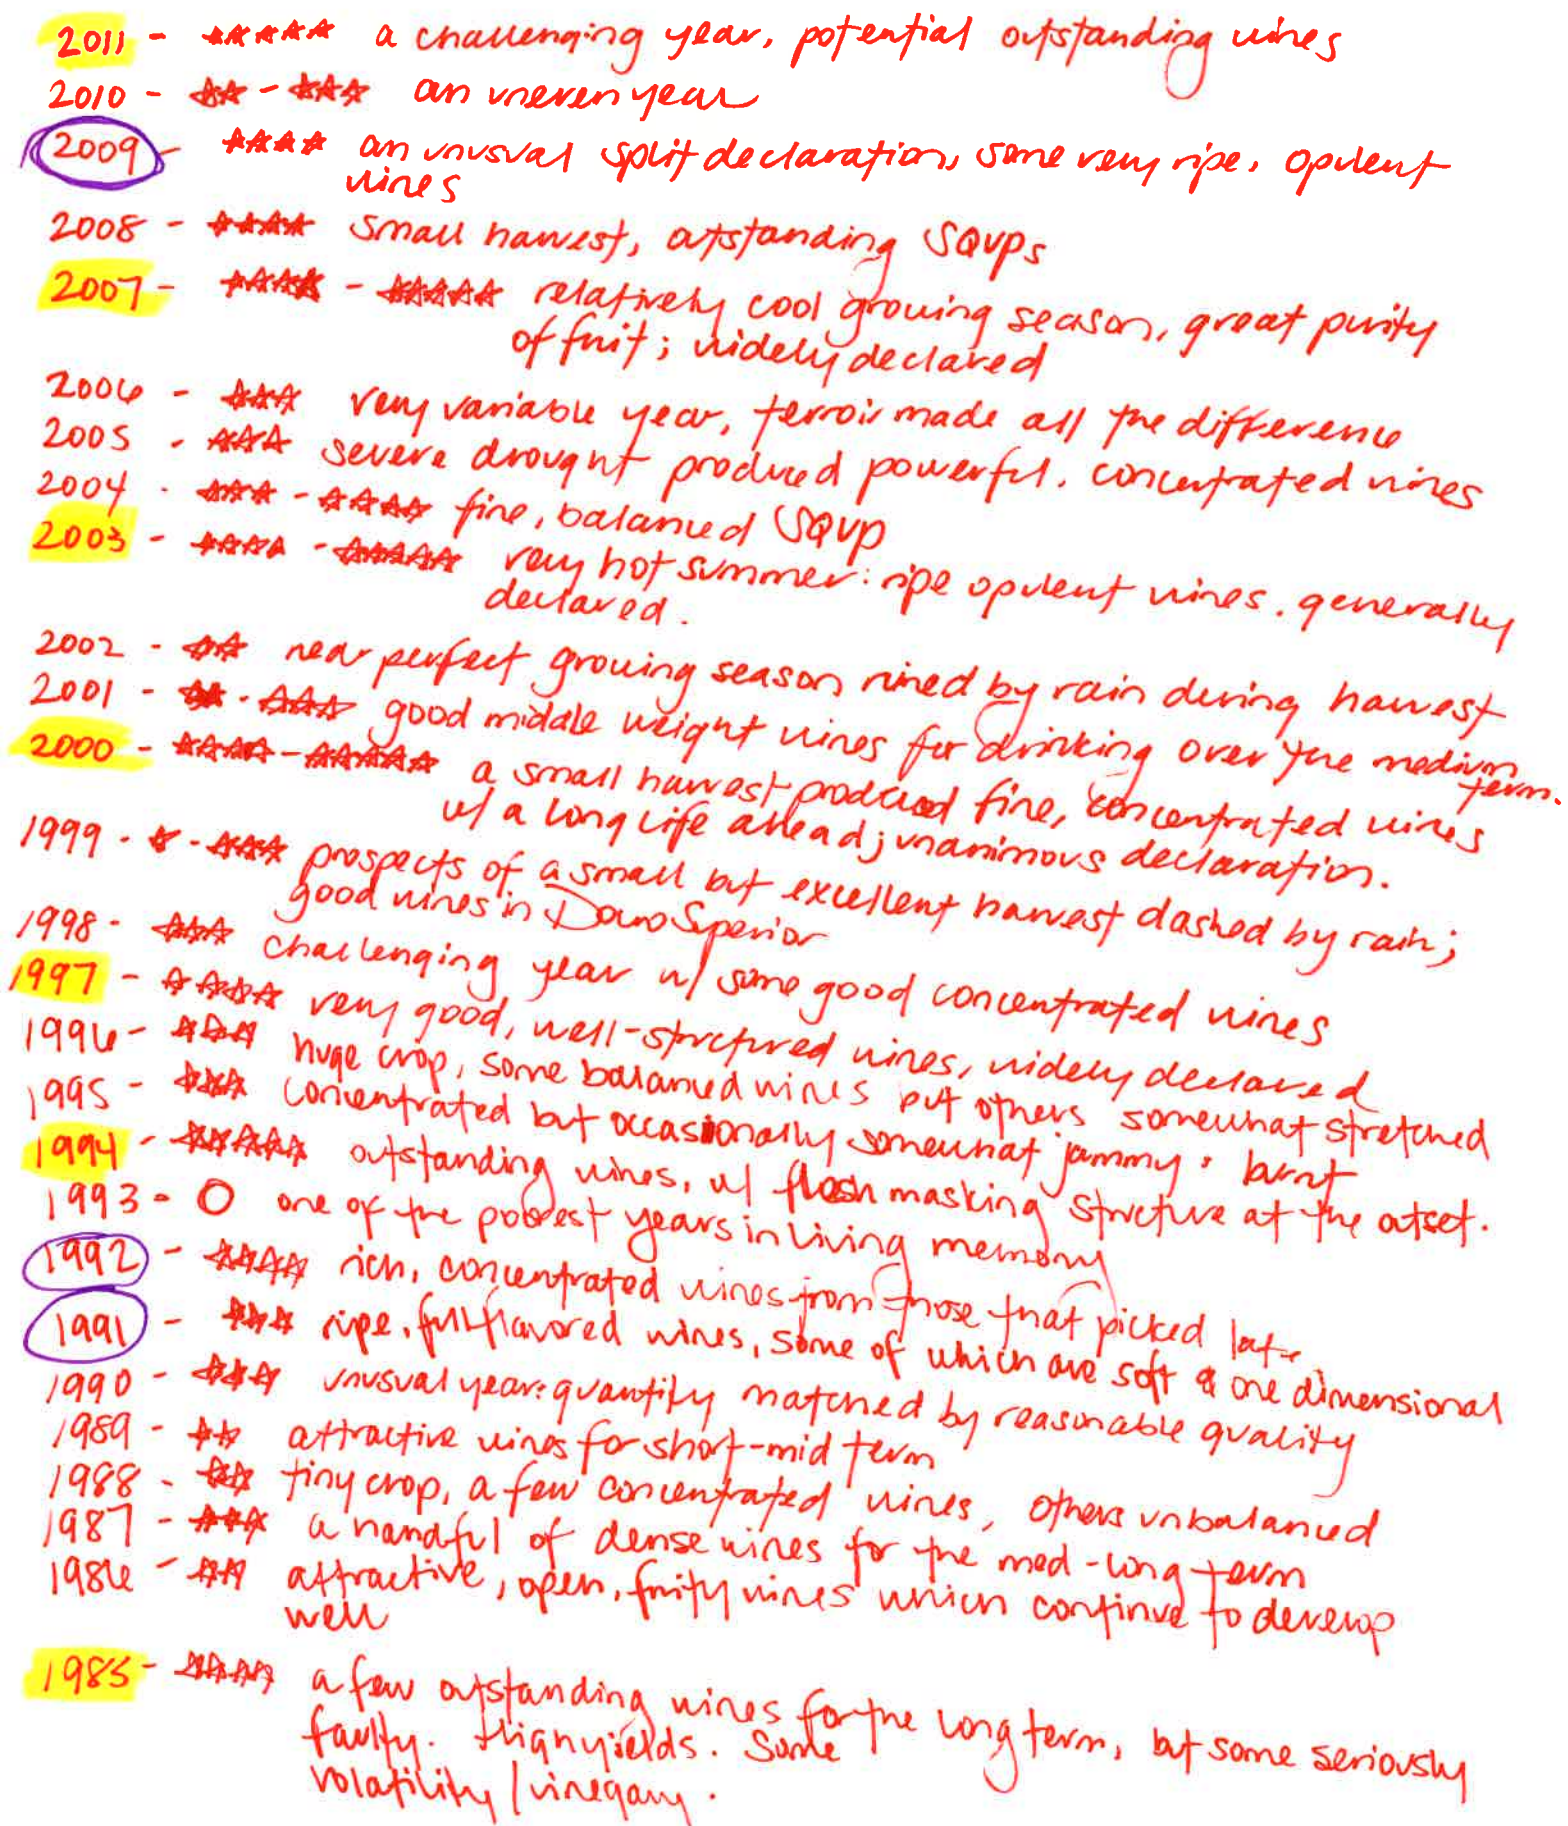 2011 - ★★★★★ a challenging year, potential outstanding wines
2010 - ★★ - ★★★ an uneven year
2009 - ★★★★ an unusual split declaration, some very ripe, opulent
wines
2008 - ★★★★ small harvest, outstanding SQVPs
2007 - ★★★★ - ★★★★★ relatively cool growing season, great purity
of fruit; widely declared
2006 - ★★★ very variable year, terroir made all the difference
2005 - ★★★ severe drought produced powerful, concentrated wines
2004 - ★★★ - ★★★★ fine, balanced SQVP
2003 - ★★★★ - ★★★★★ very hot summer: ripe opulent wines. generally
declared.
2002 - ★★ near perfect growing season ruined by rain during harvest
2001 - ★★ - ★★★ good middle weight wines for drinking over the medium
term.
2000 - ★★★★ - ★★★★★ a small harvest produced fine, concentrated wines
w/ a long life ahead; unanimous declaration.
1999 - ★ - ★★★ prospects of a small but excellent harvest dashed by rain;
good wines in Douro Superior
1998 - ★★★ challenging year w/ some good concentrated wines
1997 - ★★★★ very good, well-structured wines, widely declared
1996 - ★★★ huge crop, some balanced wines but others somewhat stretched
1995 - ★★★ concentrated but occasionally somewhat jammy, burnt
1994 - ★★★★★ outstanding wines, w/ flesh masking structure at the outset.
1993 - 0 one of the poorest years in living memory
1992 - ★★★★ rich, concentrated wines from those that picked late
1991 - ★★★ ripe, full flavored wines, some of which are soft & one dimensional
1990 - ★★★ unusual year: quantity matched by reasonable quality
1989 - ★★ attractive wines for short-mid term
1988 - ★★ tiny crop, a few concentrated wines, others unbalanced
1987 - ★★★ a handful of dense wines for the med-long term
1986 - ★★ attractive, open, fruity wines which continue to develop
well
1985 - ★★★★ a few outstanding wines for the long term, but some seriously
faulty. High yields. Some
volatility / vinegary.